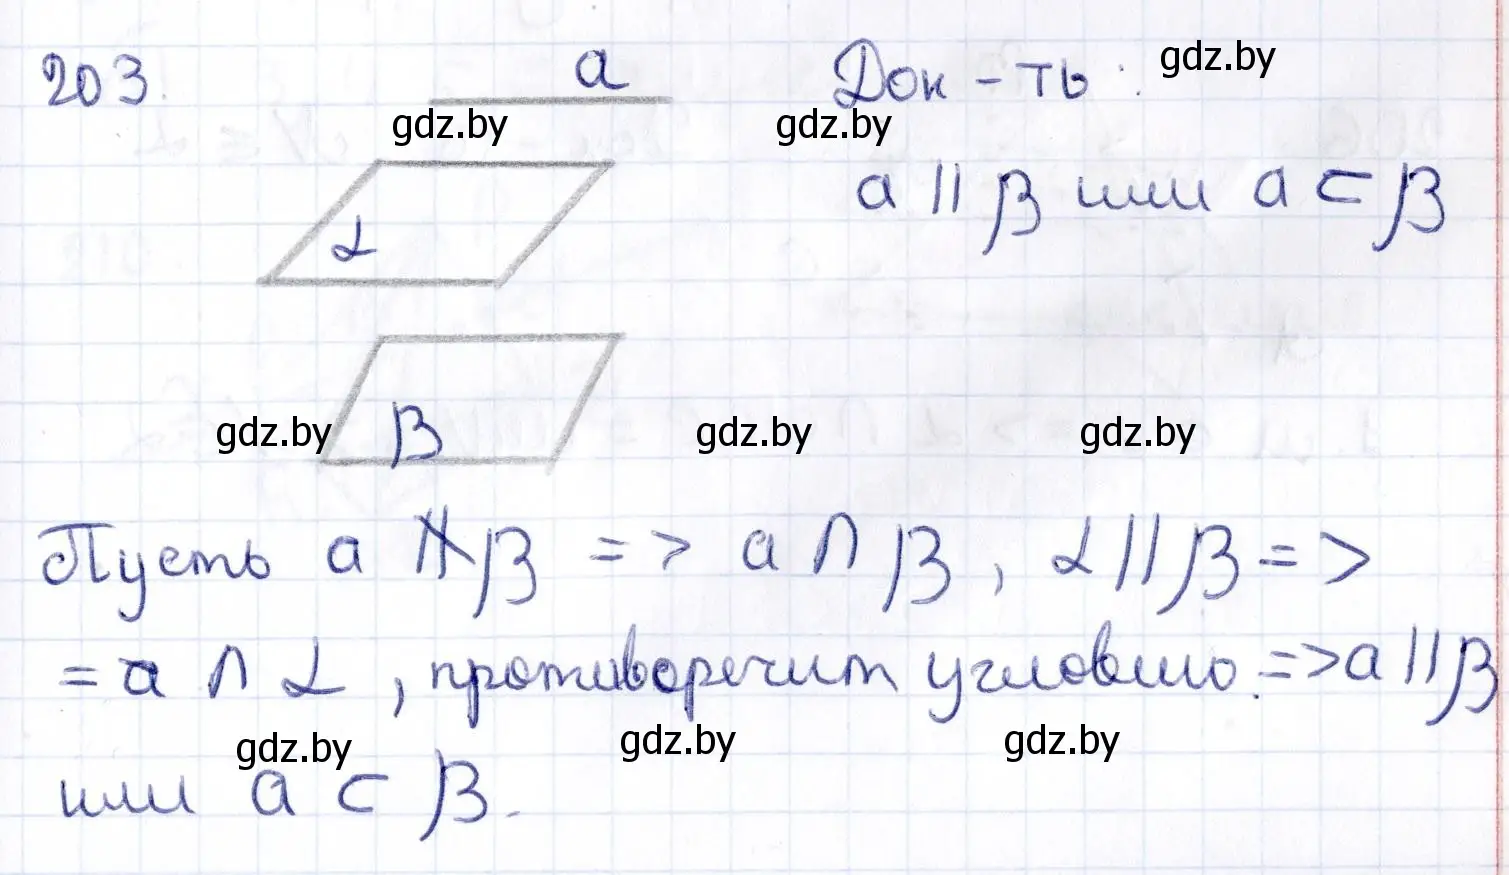 203.
a
Док-ть:
gdz.by
gdz.by
gdz.by
a || β или a ⊂ β
α
β
gdz.by
gdz.by
gdz.by
Пусть a ∦ β => a ∩ β, α || β =>
= a ∩ α, противоречит условию. => a || β
gdz.by
gdz.by
gdz.by
или a ⊂ β.